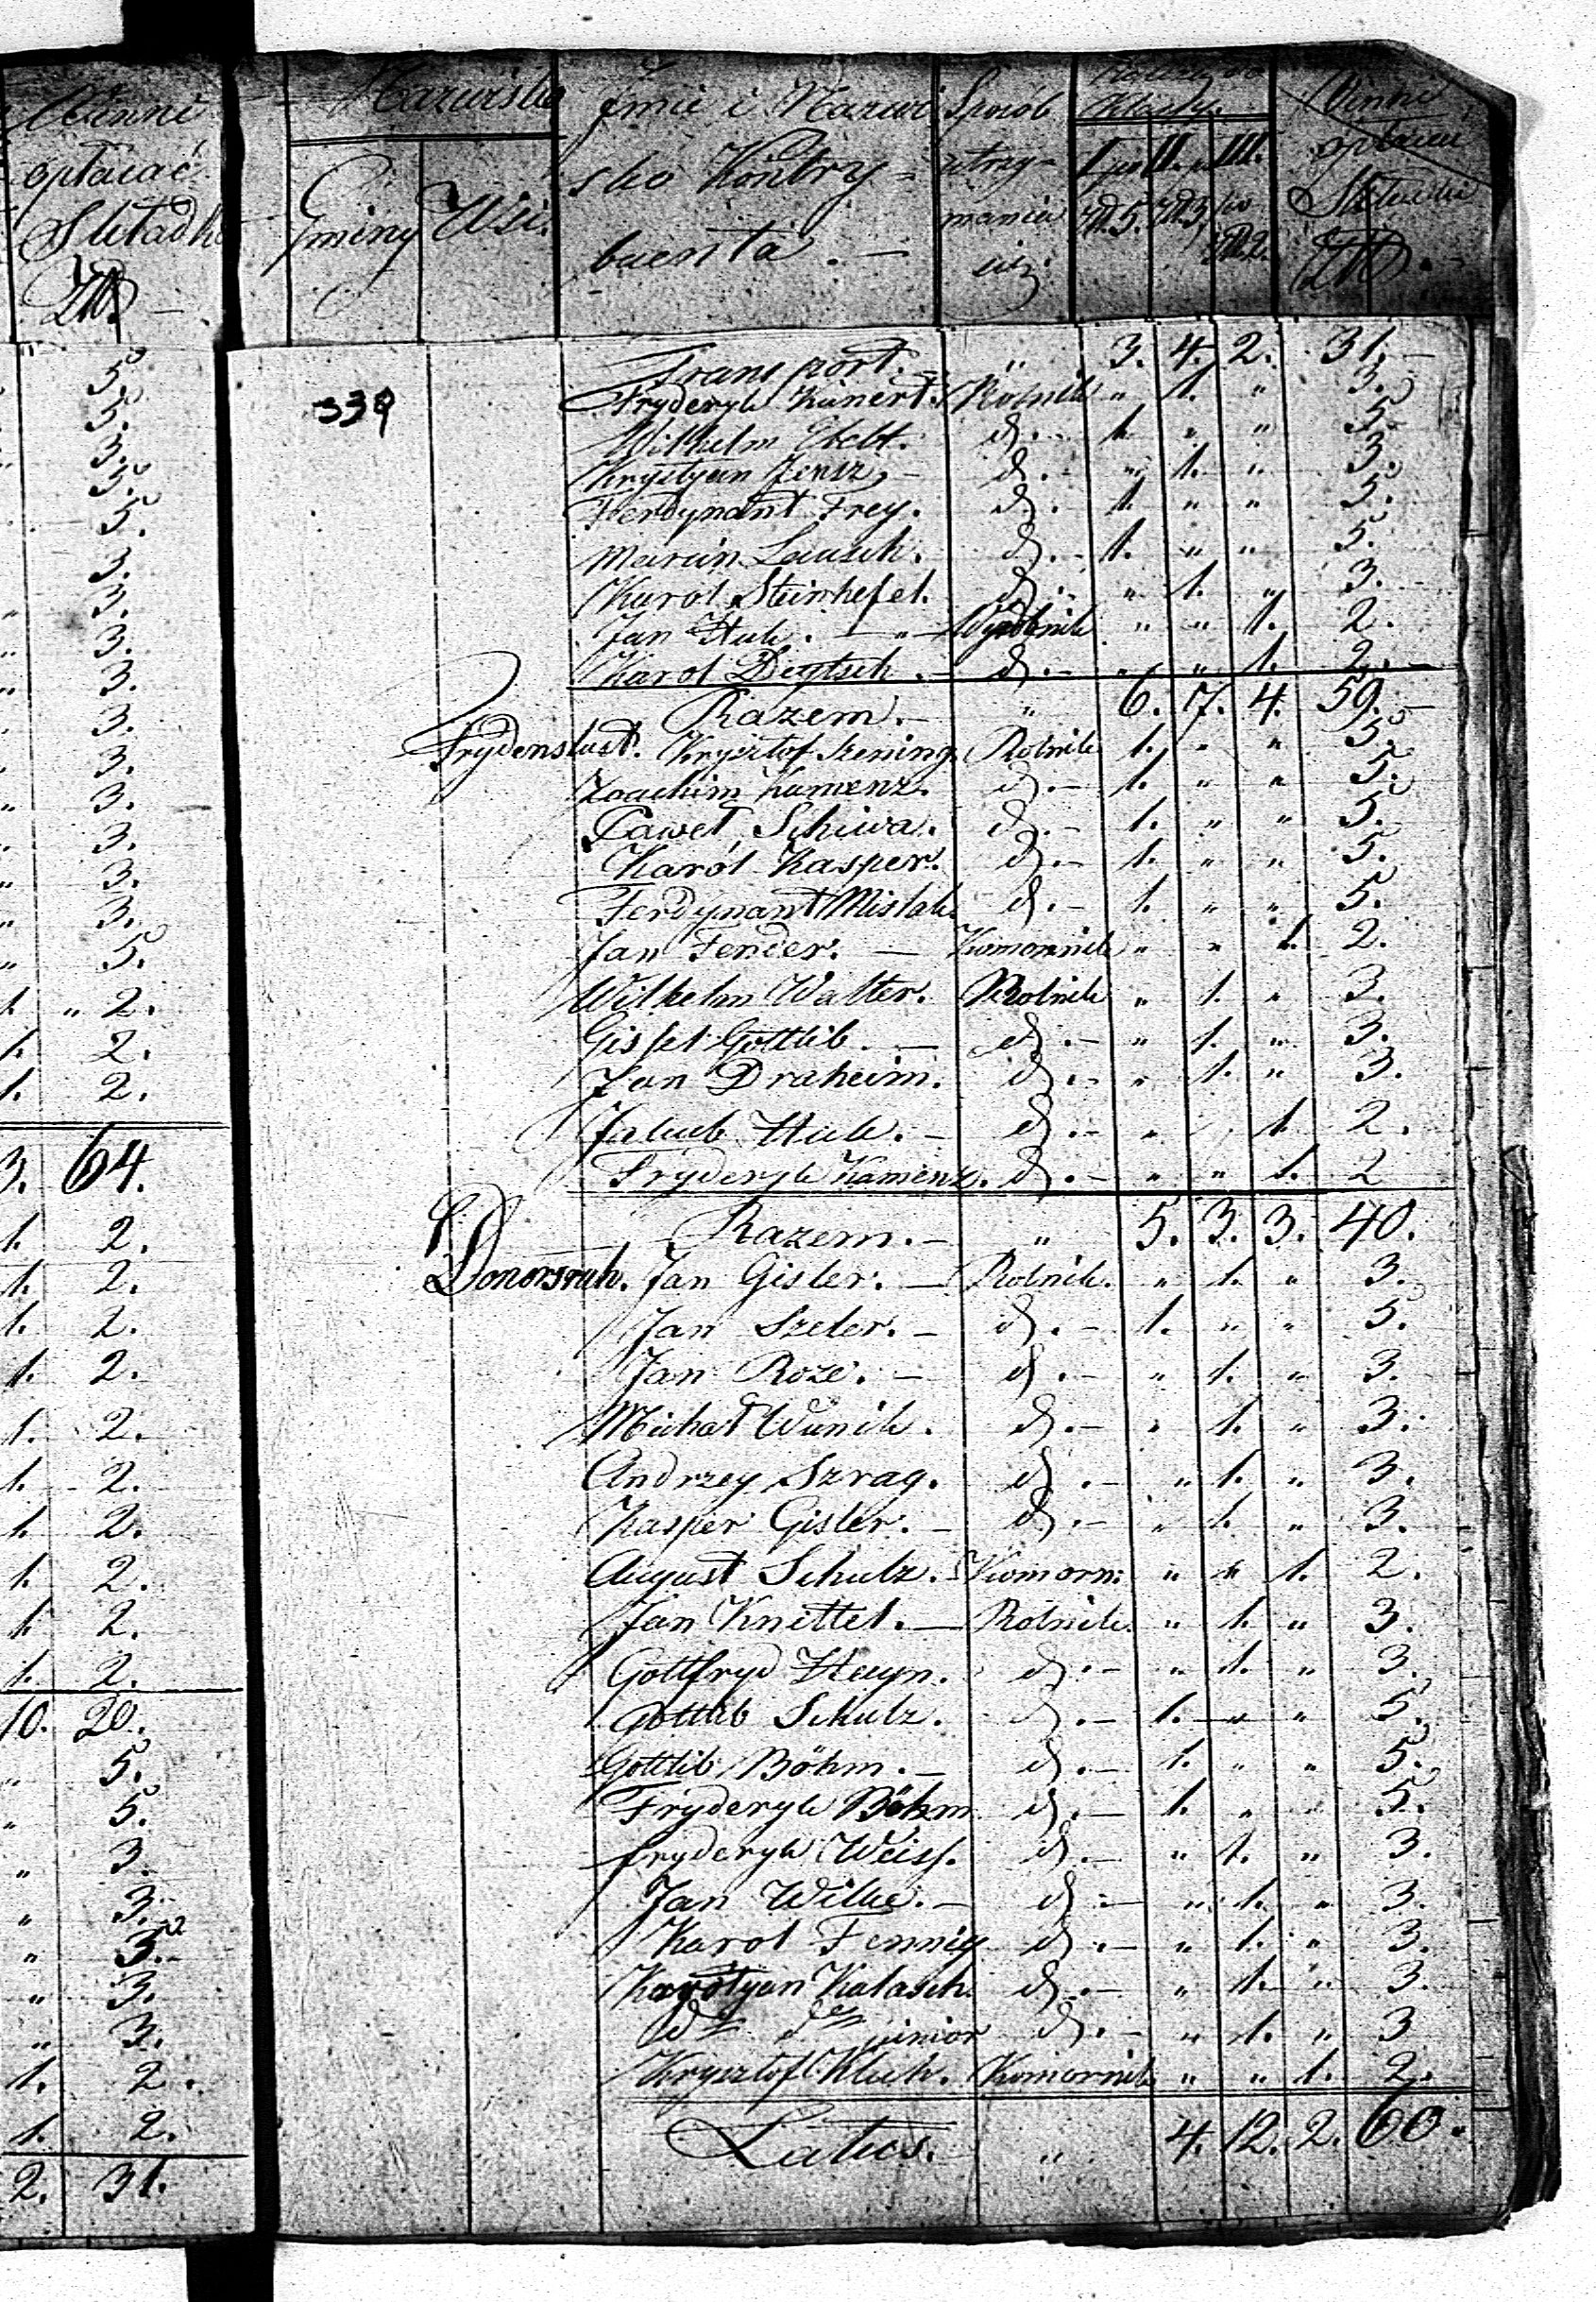 Winni
opłacać
Składkę
Złt.
5.
5.
3.
3.
5.
3.
3.
3.
3.
3.
3.
3.
3.
3.
3.
5.
1. " 2.
1. 2.
1. 2.
3. 64.
1. 2.
1. 2.
1. 2.
1. 2.
1. 2.
1. 2.
1. 2.
1. 2.
1. 2.
1. 2.
10. 20.
" 5.
" 5.
" 3.
" 3.
" 3.
" 3.
" 3.
1. 2.
1. 2.
2. 31.
Nazwisko
Gminy Wsi.
Imie i Nazwi
sko Kontry-
buenta. —
Sposób
utrzy-
mania
się
Klassy.
I po II. " III.
Zł. 5. Zł. 3. po
Zł. 2.
Winni
opłacać
Składkę
Złt. —
339
Transport. " 3. 4. 2. 31. —
Fryderyk Künert. Rolnik " 1. " 3.
Wilhelm d. — 1. " " 5.
Krystyan Jensz, — d. — " 1. " 3.
Ferdynant Frey. d. — 1. " " 5.
Marcin Lausch. d. — 1. " " 5.
Karol Steinhefel. d. — " 1. " 3.
Jan Huk. — " — Wyrobnik " " 1. 2.
Karol Degtsch. — d. — " " 1. 2. —
Razem. — " 6. 7. 4. 59. —
Frydenslust. Krysztof Szening. Rolnik 1. " " 5.
Joachim Kamenz. d. — 1. " " 5.
Paweł Schiwa. d. — 1. " " 5.
Karól Kasper. d. — 1. " " 5.
Ferdynant Mislak. d. — 1. " " 5.
Jan Fender. — Komornik " " 1. 2.
Wilhelm Walter. Rolnik " 1. " 3.
Gisfel Gottlib. — d. — " 1. " 3.
Jan Draheim. d. — " 1. " 3.
Jakub Huk. — d. — " " 1. 2.
Fryderyk Kamenz. d. — " " 1. 2
Razem. — " 5. 3. 3. 40.
Donorsruh. Jan Gisler. — Rolnik. " 1. " 3.
Jan Szeler. — d. — 1. " " 5.
Jan Roze. — d. — " 1. " 3.
Michał Wünik. d. — " 1. " 3.
Andrzey Szrag. d. — " 1. " 3.
Kasper Gisler. — d. — " 1. " 3.
August Schulz. Komorn: " " 1. 2.
Jan Knittel. — Rolnik. " 1. " 3.
Gottfryd Heyn. d. — " 1. " 3.
Gottlib Schulz. d. — 1. " " 5.
Gottlib Böhm. — d. — 1. " " 5.
Fryderyk Böhm d. — 1. " " 5.
Fryderyk Weiss. d. — " 1. " 3.
Jan Wilke. — d. — " 1. " 3.
Karol Fennig d. — " 1. " 3.
Krystyan Kalasch. d. — " 1. " 3.
dto dto junior d. — " 1. " 3
Krysztof Kluk. Komornik " " 1. 2.
Latus. " 4. 12. 2. 60.